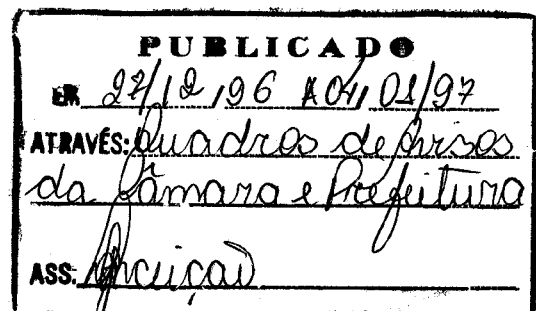 PUBLICADO
EM 27/12/96 A 04/01/97
ATRAVÉS: Quadros de Avisos
da Câmara e Prefeitura
ASS.